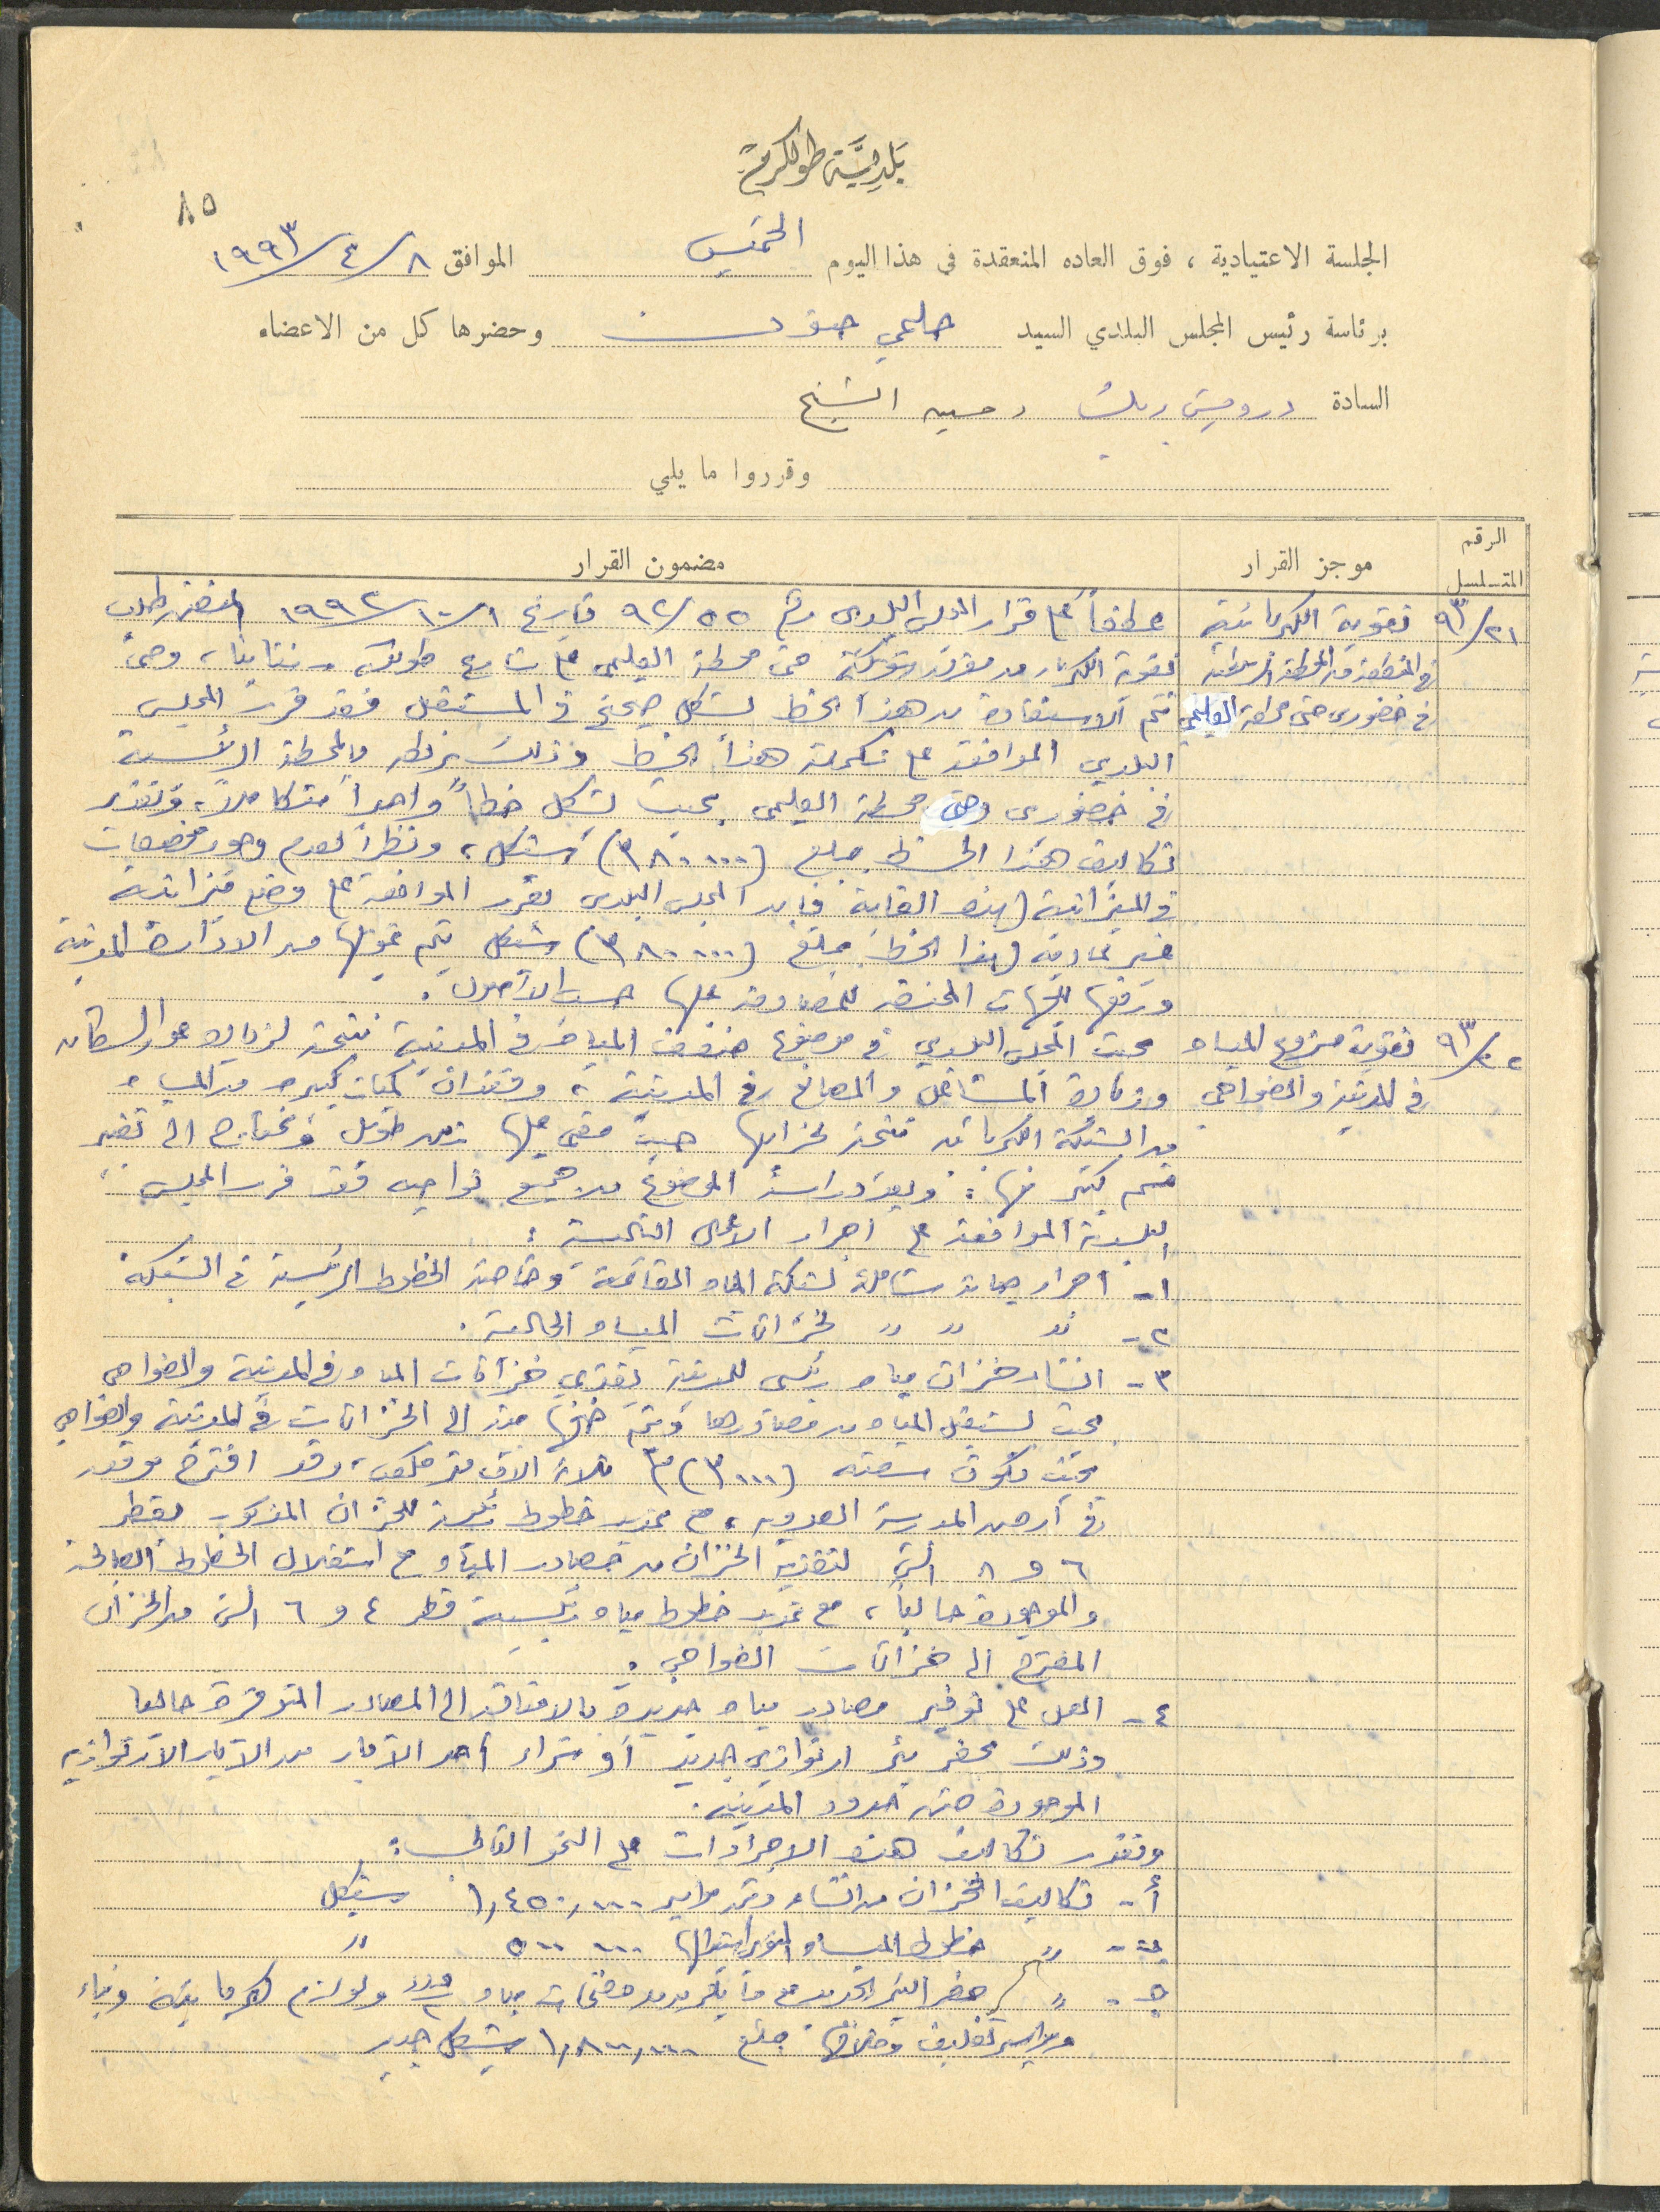 بلدية طولكرم
٨٥
الجلسة الاعتيادية ، فوق العاده المنعقدة في هذا اليوم الخميس الموافق ٨/٤/١٩٩٣
برئاسة رئيس المجلس البلدي السيد حلمي حنون وحضرها كل من الاعضاء
السادة درويش وحسيب الشيخ
وقرروا ما يلي
الرقم المتسلسل موجز القرار مضمون القرار
٢١/٩٣ تقوية الكهربائية
في المنطقة من المحطة الرئيسية
في خضوري حتى محطة العليمي
عطفاً على قرار المجلس البلدي رقم ٥٥/٩٢ تاريخ ١/١٠/١٩٩٢ المتضمن طلب
تقوية الكهرباء من مفرق شويكة حتى محطة العليمي على شارع طولكرم - نتانيا، وحتى
تتم الاستفادة من هذا الخط بشكل صحيح في المستقبل فقد قرر المجلس
البلدي الموافقة على تكملة هذا الخط وذلك بربطه بالمحطة الرئيسية
في خضوري وحتى محطة العليمي بحيث تشكل خطاً واحداً متكاملاً، وتقدر
تكاليف هذا الخط بمبلغ (٣٨٠٠٠٠) شيكل، ونظراً لعدم وجود مخصصات
في الميزانية لهذه الغاية فإن المجلس البلدي يقرر الموافقة على وضع ميزانية
غير عادية لهذا الخط بمبلغ (٣٨٠٠٠٠) شيكل يتم تمويلها من الادارة المدنية
ورفعها للجهات المختصة للمصادقة عليها حسب الاصول.
٢٢/٩٣ تقوية مشروع المياه
في المدينة والضواحي
بحث المجلس البلدي في موضوع ضعف المياه في المدينة نتيجة لزيادة عدد السكان
وزيادة المشاغل والمصانع في المدينة، وفقدان كميات كبيرة من المياه
من الشبكة نتيجة لخرابها حيث مضى عليها زمن طويل وتحتاج الى تغيير
قسم كبير منها. وبعد دراسة الموضوع من جميع نواحيه فقد قرر المجلس
البلدي الموافقة على اجراء الاعمال التالية :
١- اجراء صيانة شاملة لشبكة المياه القائمة وخاصة الخطوط الرئيسية في الشبكة
٢- " " " لخزانات المياه الحالية.
٣- انشاء خزان مياه رئيسي للمدينة يغذي خزانات المياه في المدينة والضواحي
بحيث يستقبل المياه من مصادرها ويتم ضخها منه الى الخزانات في المدينة والضواحي
بحيث تكون سعته (٣٠٠٠)م٣ ثلاثة الاف متر مكعب، وقد اقترح موقعه
في أرض المدرسة العدوية، مع تمديد خطوط رئيسية للخزان المذكور بقطر
٦ و ٨ انش لتغذية الخزان من مصادر المياه مع استغلال الخطوط الصالحة
والموجودة حالياً، مع تمديد خطوط مياه رئيسية قطر ٤ و ٦ انش من الخزان
المقترح الى خزانات الضواحي.
٤- العمل على توفير مصادر مياه جديدة بالاضافة الى المصادر المتوفرة حاليا
وذلك بحفر بئر ارتوازي جديد أو شراء أحد الآبار من الآبار الارتوازية
الموجودة ضمن حدود المدينة.
وتقدر تكاليف هذه الاجراءات على النحو التالي :
أ- تكاليف الخزان من انشاء وتمديد مواسير ١,٤٥٠,٠٠٠ شيكل
ب- " خطوط المياه المنوي استبدالها ٥٠٠ ٠٠٠ "
ج- " حفر البئر الجديد مع ما يلزم من مضخات مياه عدد ٢ ولوازم كهربائية وبناء
ومواسير تغليف وخلافها بمبلغ ١,٨٠٠,٠٠٠ شيكل جديد